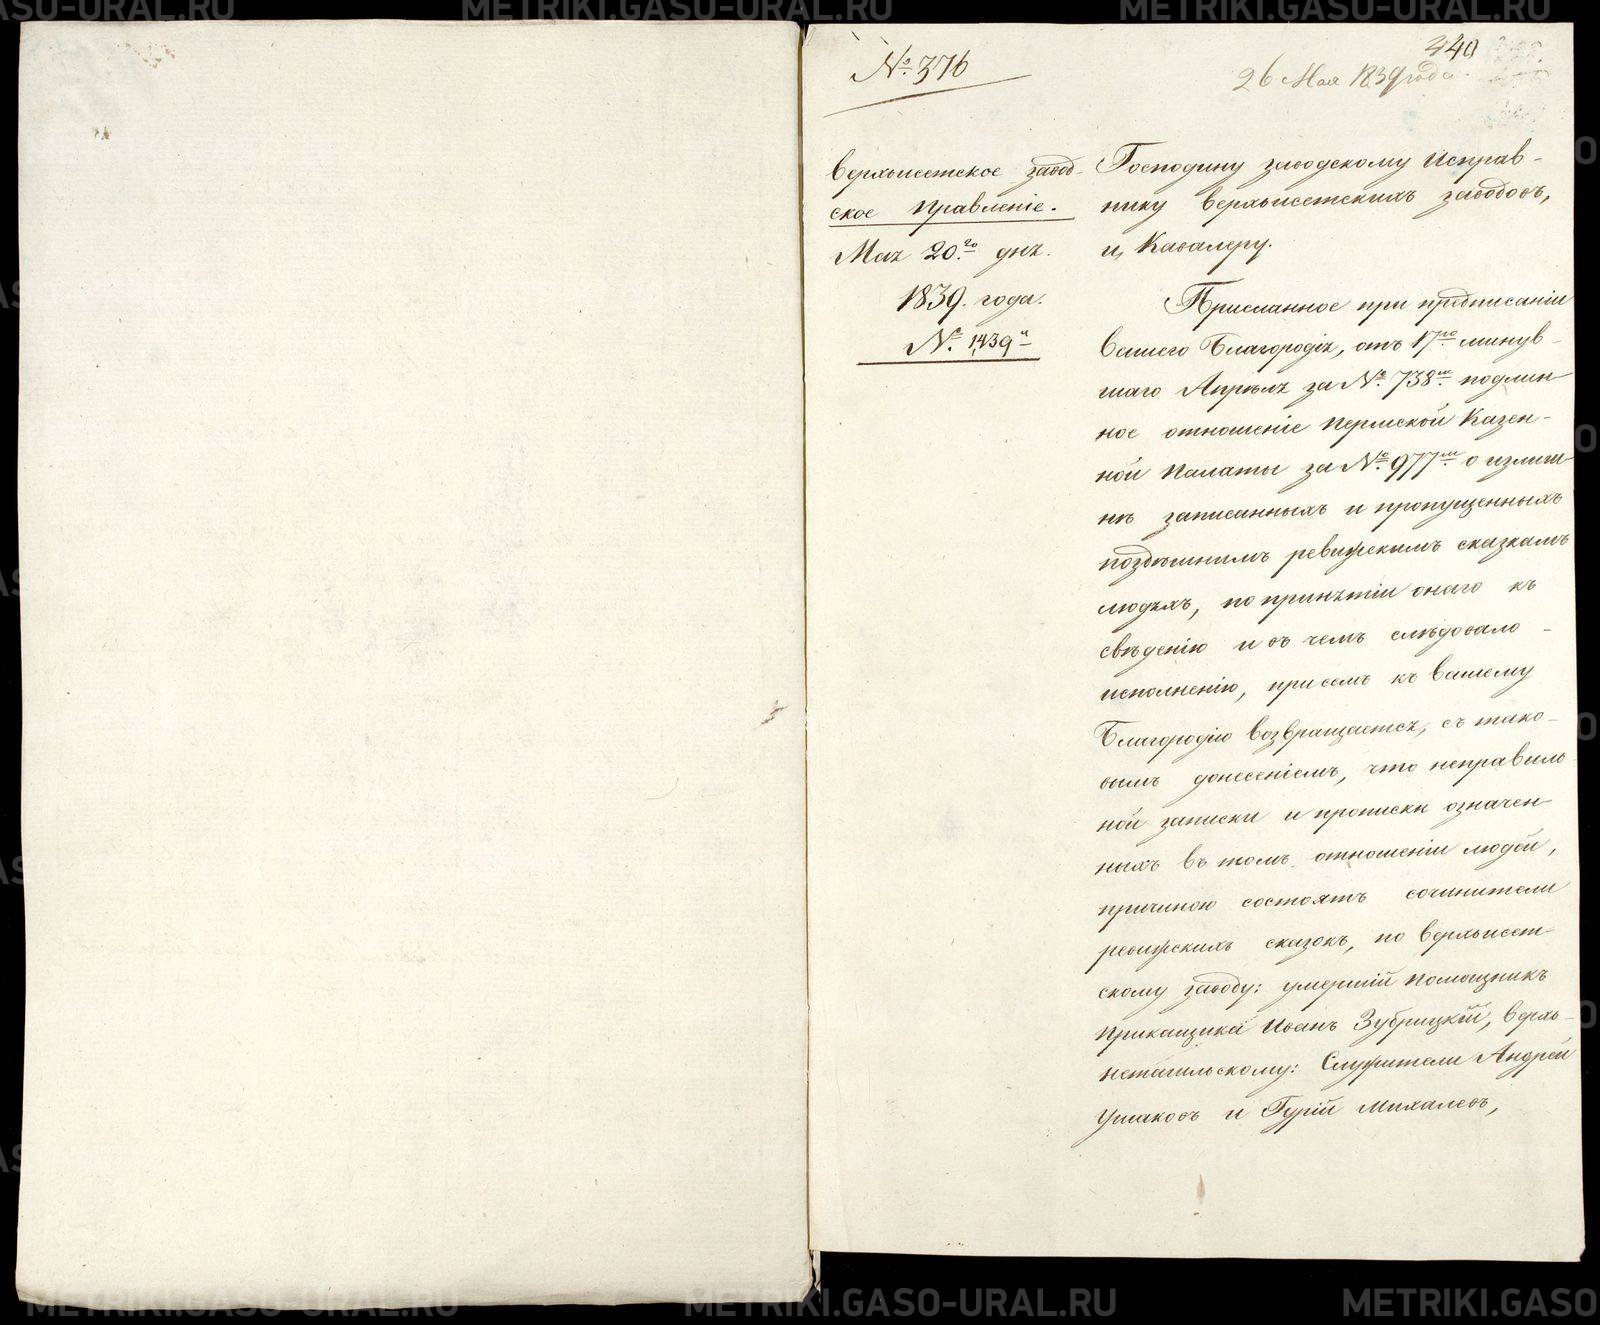 440
№ 376
26 Мая 1839 года.
Верхъисетское завод-
ское Правленіе.
Мая 20го дня.
1839. года.
№ 1439й
Господину заводскому Исправ-
нику Верхъисетскихъ заводовъ,
и Кавалеру.
Присланное при предписаніи
Вашего Благородія, отъ 17го минув-
шаго Апрѣля за № 738м. подлин-
ное отношеніе Пермской Казен-
ной Палаты за № 977м. о излиш-
не записанныхъ и пропущенныхъ
поздѣшнимъ ревижскимъ сказкамъ
людяхъ, по принятіи онаго къ
свѣденію и въ чемъ слѣдовало
исполненію, при семъ къ Вашему
Благородію возвращается, съ тако-
вымъ донесеніемъ, что неправиль
ной записки и прописки означен-
ныхъ въ томъ отношеніи людей,
причиною состоятъ сочинители
ревижскихъ сказокъ, по Верхъисет-
скому заводу: умершій Помощникъ
Прикащика Иванъ Зубрицкій, Верхъ-
нетагильскому: Служители Андрей
Ушаковъ и Гурій Михалевъ,
METRIKI.GASO-URAL.RU